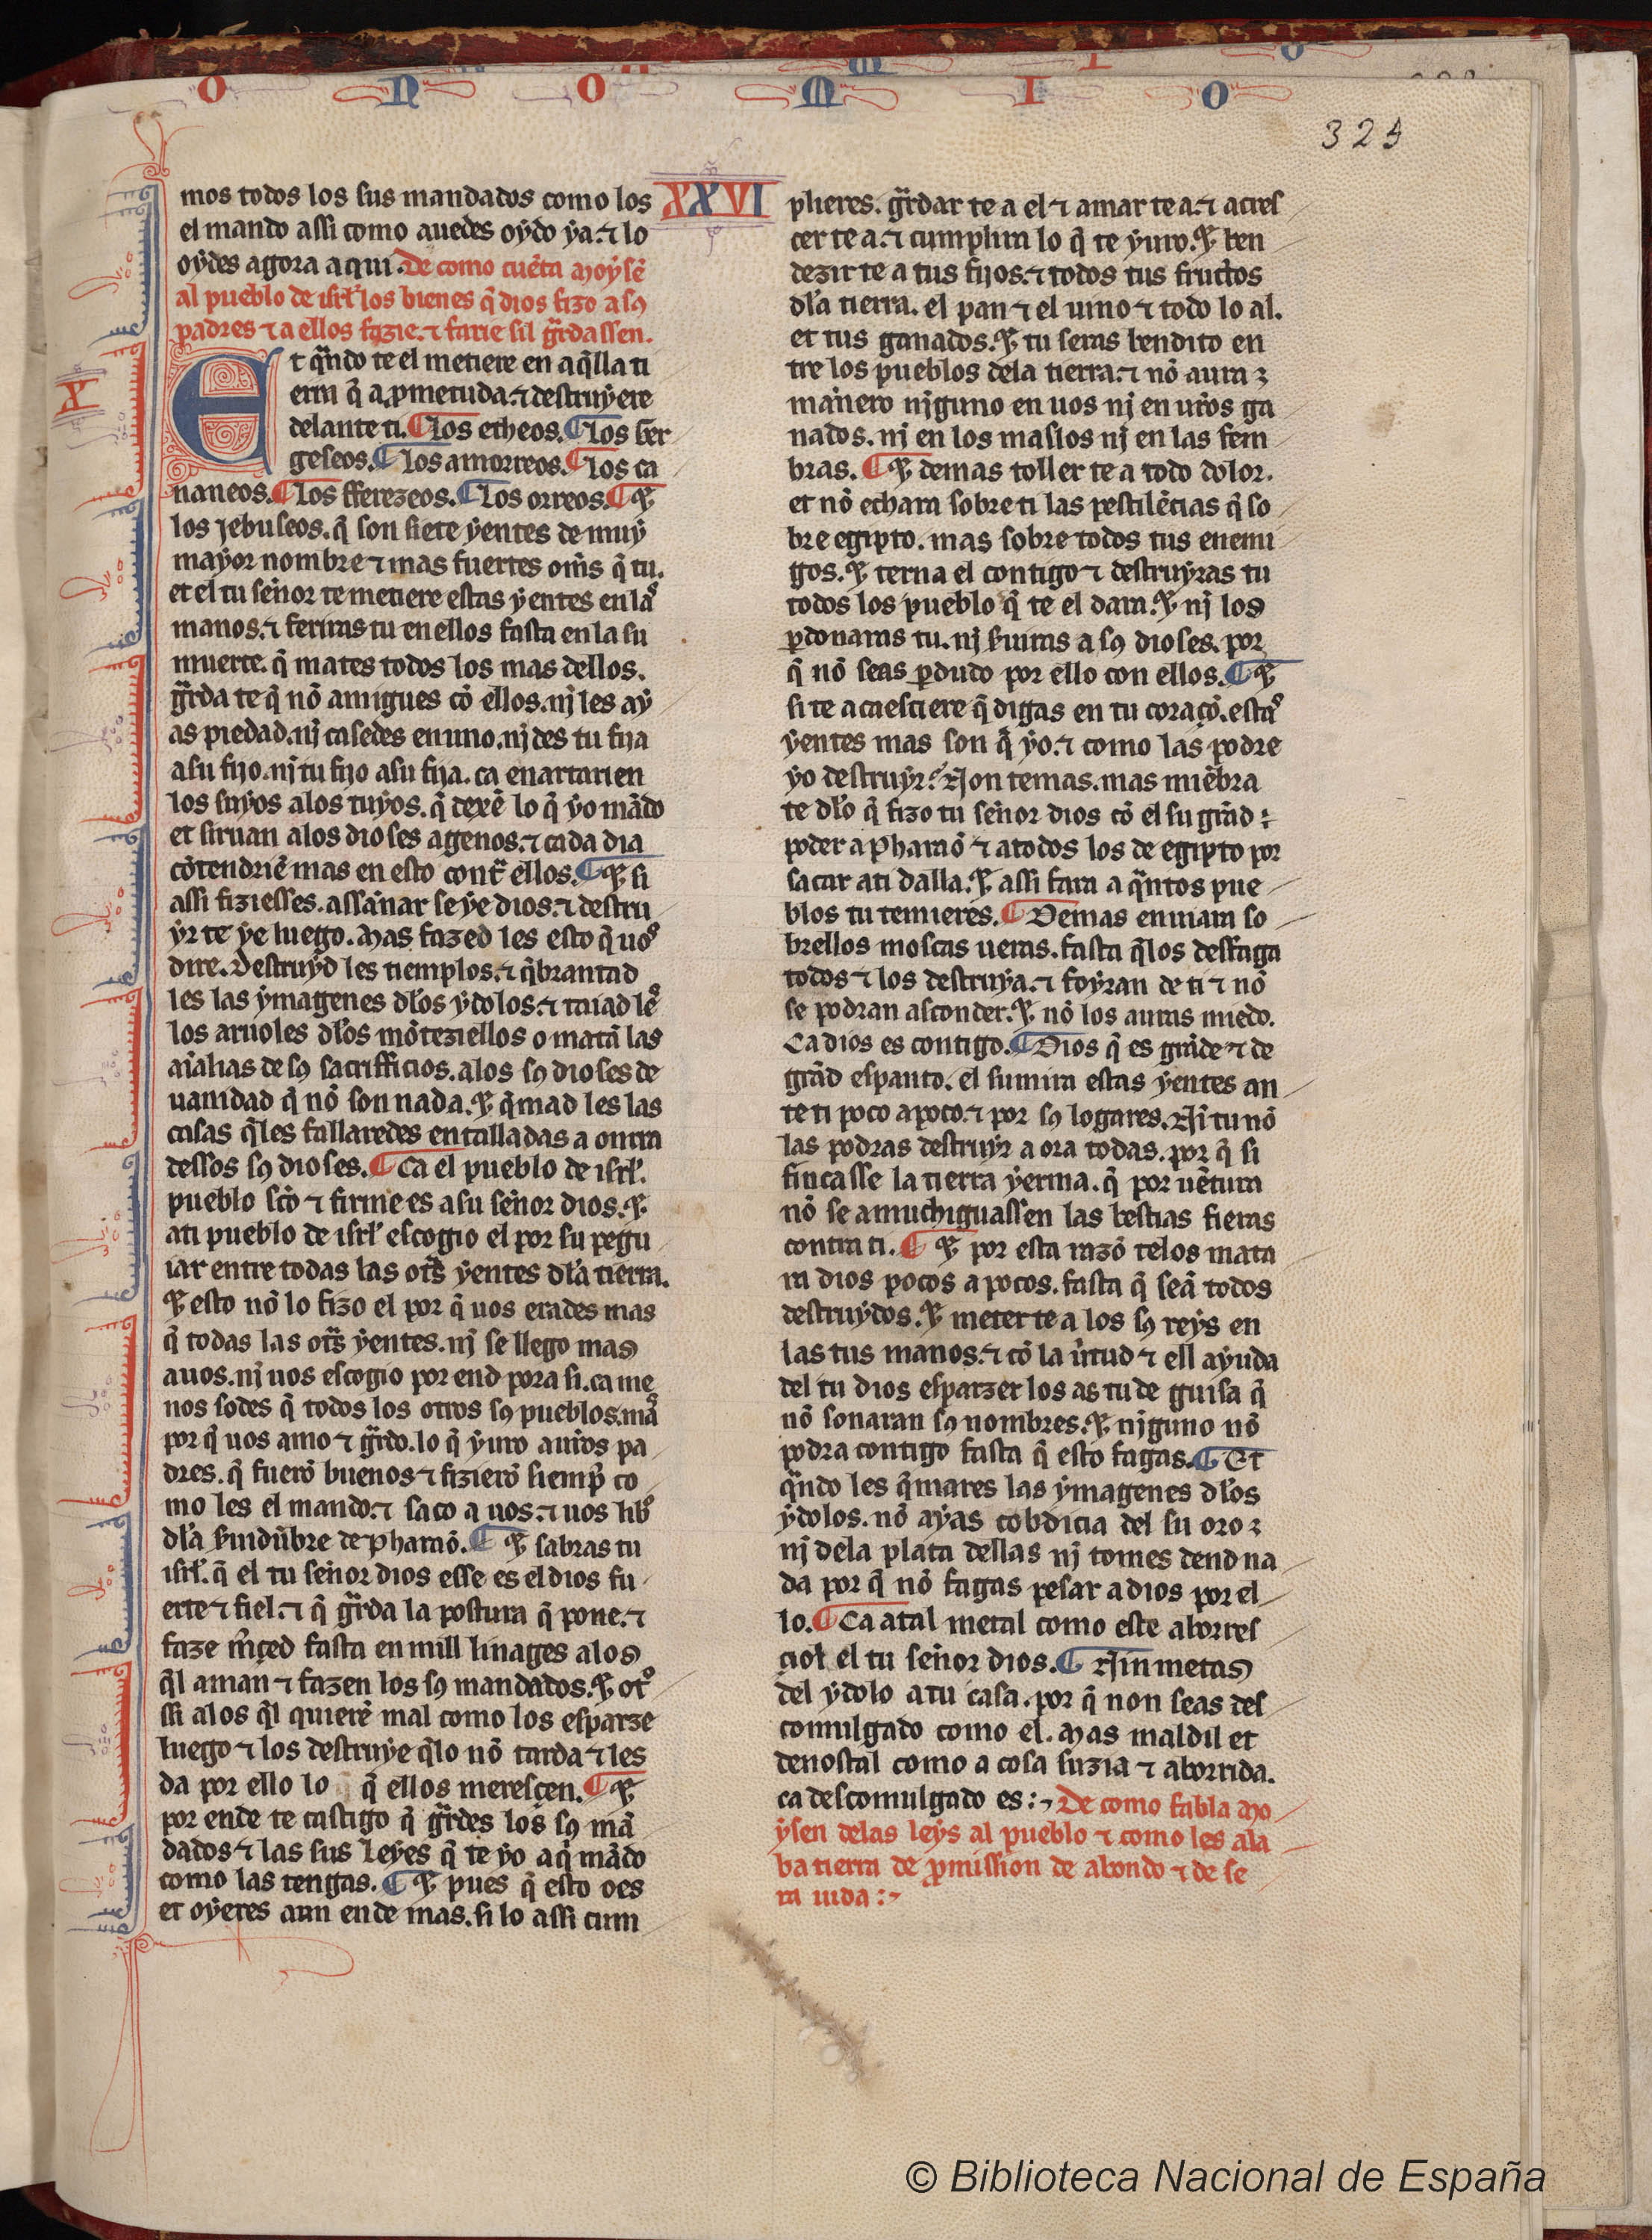 O N O M I O
325
mos todos los sus mandados como los
el mando assi como auedes oydo ya. ⁊ lo
oydes agora aqui. De como cuẽta moysẽ
al pueblo de isrl̃ los bienes q̃ dios fizo a sꝯ
padres ⁊ a ellos fazie. ⁊ farie sil gr̃dassen.
X
Et qñdo te el metiere en aq̃lla ti
erra q̃ a ꝓmetuda. ⁊ destruyere
delante ti. ¶ Los etheos. ¶ Los ger
geseos. ¶ Los amorreos. ¶ Los ca
naneos. ¶ Los fferezeos. ¶ Los orreos. ¶ ⁊
los jebuseos. q̃ son siete yentes de muy
mayor nombre ⁊ mas fuertes om̃s q̃ tu.
et el tu sennor te metiere estas yentes en las
manos. ⁊ ferras tu en ellos fasta en la su
muerte. q̃ mates todos los mas dellos.
gr̃da te q̃ nõ amigues cõ ellos. nj les ay
as piedad. nj casedes en uno. nj des tu fija
a su fijo. nj tu fijo a su fija. ca enartarien
los suyos alos tuyos. q̃ dexẽ lo q̃ yo mãdo
et siruan alos dioses agenos. ⁊ cada dia
cõtendriẽ mas en esto contr̃ ellos. ¶ ⁊ si
assi fiziesses. assañar se ye dios. ⁊ destru
yr te ye luego. Mas fazed les esto q̃ uos
dire. Destruyd les tiemplos. ⁊ q̃brantad
les las ymagenes dl̃os ydolos. ⁊ taiad les
los aruoles dl̃os mõteziellos o matã las
aĩalias de sꝯ sacrifficios. alos sꝯ dioses de
uanidad q̃ nõ son nada. ⁊ q̃mad les las
casas q̃ les fallaredes entalladas a onrra
dessos sꝯ dioses. ¶ Ca el pueblo de isrl̃.
pueblo sc̃o ⁊ firme es a su sennor dios. ⁊
ati pueblo de isrl̃ escogio el por su pegu
iar entre todas las otr̃s yentes dl̃a tierra.
⁊ esto nõ lo fizo el por q̃ uos erades mas
q̃ todas las otr̃s yentes. nj se llego mas
auos. nj uos escogio por end pora si. ca me
nos sodes q̃ todos los otros sꝯ pueblos. mas
por q̃ uos amo ⁊ gr̃do. lo q̃ yuro aur̃os pa
dres. q̃ fuerõ buenos ⁊ fizierõ siemp̃ co
mo les el mando. ⁊ saco a uos. ⁊ uos libº
dl̃a s̃uidũbre de pharaõ. ¶ ⁊ sabras tu
isrl̃. q̃ el tu sennor dios esse es el dios fu
erte ⁊ fiel. ⁊ q̃ gr̃da la postura q̃ pone. ⁊
faze m̃çed fasta en mill linages alos
q̃l aman ⁊ fazen los sꝯ mandados. ⁊ otº
ssi alos q̃l quierẽ mal como los esparze
luego ⁊ los destruye q̃lo nõ tarda ⁊ les
da por ello lo q̃ ellos meresçen. ¶ ⁊
por ende te castigo q̃ gr̃des los sꝯ mã
dados ⁊ las sus leyes q̃ te yo aq̃ mãdo
como las tengas. ¶ ⁊ pues q̃ esto oes
et oyeres aun ende mas. si lo assi cum
XXVI
plieres. gr̃dar te a el ⁊ amar te a. ⁊ acres
cer te a. ⁊ cumplira lo q̃ te yuro. ⁊ ben
dezir te a tus fijos. ⁊ todos tus fructos
dl̃a tierra. el pan ⁊ el uino ⁊ todo lo al.
et tus ganados. ⁊ tu seras bendito en
tre los pueblos dela tierra. ⁊ nõ aura
mannero njguno en uos nj en ur̃os ga
nados. nj en los maslos nj en las fem
bras. ¶ ⁊ demas toller te a todo dolor.
et nõ echara sobre ti las pestilẽcias q̃ so
bre egipto. mas sobre todos tus enemi
gos. ⁊ terna el contigo ⁊ destruyras tu
todos los pueblo q̃ te el dara. ⁊ nj los
ꝑdonaras tu. nj s̃uiras a sꝯ dioses. por
q̃ nõ seas ꝑdudo por ello con ellos. ¶ ⁊
si te acaesciere q̃ digas en tu coraçõ. estas
yentes mas son q̃ yo. ⁊ como las podre
yo destruyr? Non temas. mas miẽbra
te dl̃o q̃ fizo tu sennor dios cõ el su grãd
poder a pharaõ ⁊ a todos los de egipto por
sacar ati dalla. ⁊ assi fara a qñtos pue
blos tu temieres. ¶ Demas enuiara so
brellos moscas ueras. fasta q̃los desfaga
todos ⁊ los destruya. ⁊ foyran de ti ⁊ nõ
se podran asconder. ⁊ nõ los auras miedo.
Ca dios es contigo. ¶ Dios q̃ es grãde ⁊ de
grãd espanto. el sumira estas yentes an
te ti poco a poco. ⁊ por sꝯ logares. Nj tu nõ
las podras destruyr a ora todas. por q̃ si
fincasse la tierra yerma. q̃ por uẽtura
nõ se amuchiguassen las bestias fieras
contra ti. ¶ ⁊ por esta razõ telos mata
ra dios pocos a pocos. fasta q̃ seã todos
destruydos. ⁊ meter te a los sꝯ reys en
las tus manos. ⁊ cõ la ũtud ⁊ ell ayuda
del tu dios esparzer los as tu de guisa q̃
nõ sonaran sꝯ nombres. ⁊ njguno nõ
podra contigo fasta q̃ esto fagas. ¶ Et
qñdo les q̃mares las ymagenes dl̃os
ydolos. nõ ayas cobdicia del su oro
nj dela plata dellas nj tomes dend na
da por q̃ nõ fagas pesar a dios por el
lo. ¶ Ca atal metal como este aborres
çiol el tu sennor dios. ¶ Nin metas
del ydolo a tu casa. por q̃ non seas des
comulgado como el. Mas maldil et
denostal como a cosa suzia ⁊ aborrida.
ca descomulgado es: De como fabla mo
ysen delas leys al pueblo ⁊ como les ala
ba tierra de ꝓmission de abondo ⁊ de se
ra uida:
© Biblioteca Nacional de España